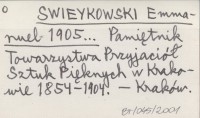 O
SWIEYKOWSKI Emma-
nuel 1905... Pamiętnik
Towarzystwa Przyjaciół
Sztuk Pięknych w Krako-
wie 1854-1904. — Kraków.
ex/045/2001